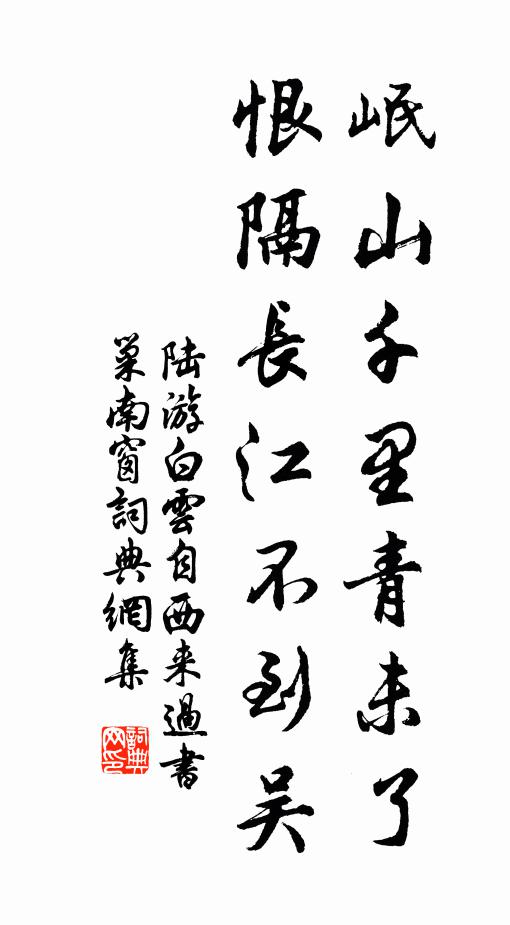 岷山千里青未了
恨隔長江不到吴
陆游白雲自西来過書
巢南窗詞典網集
詞典
网印